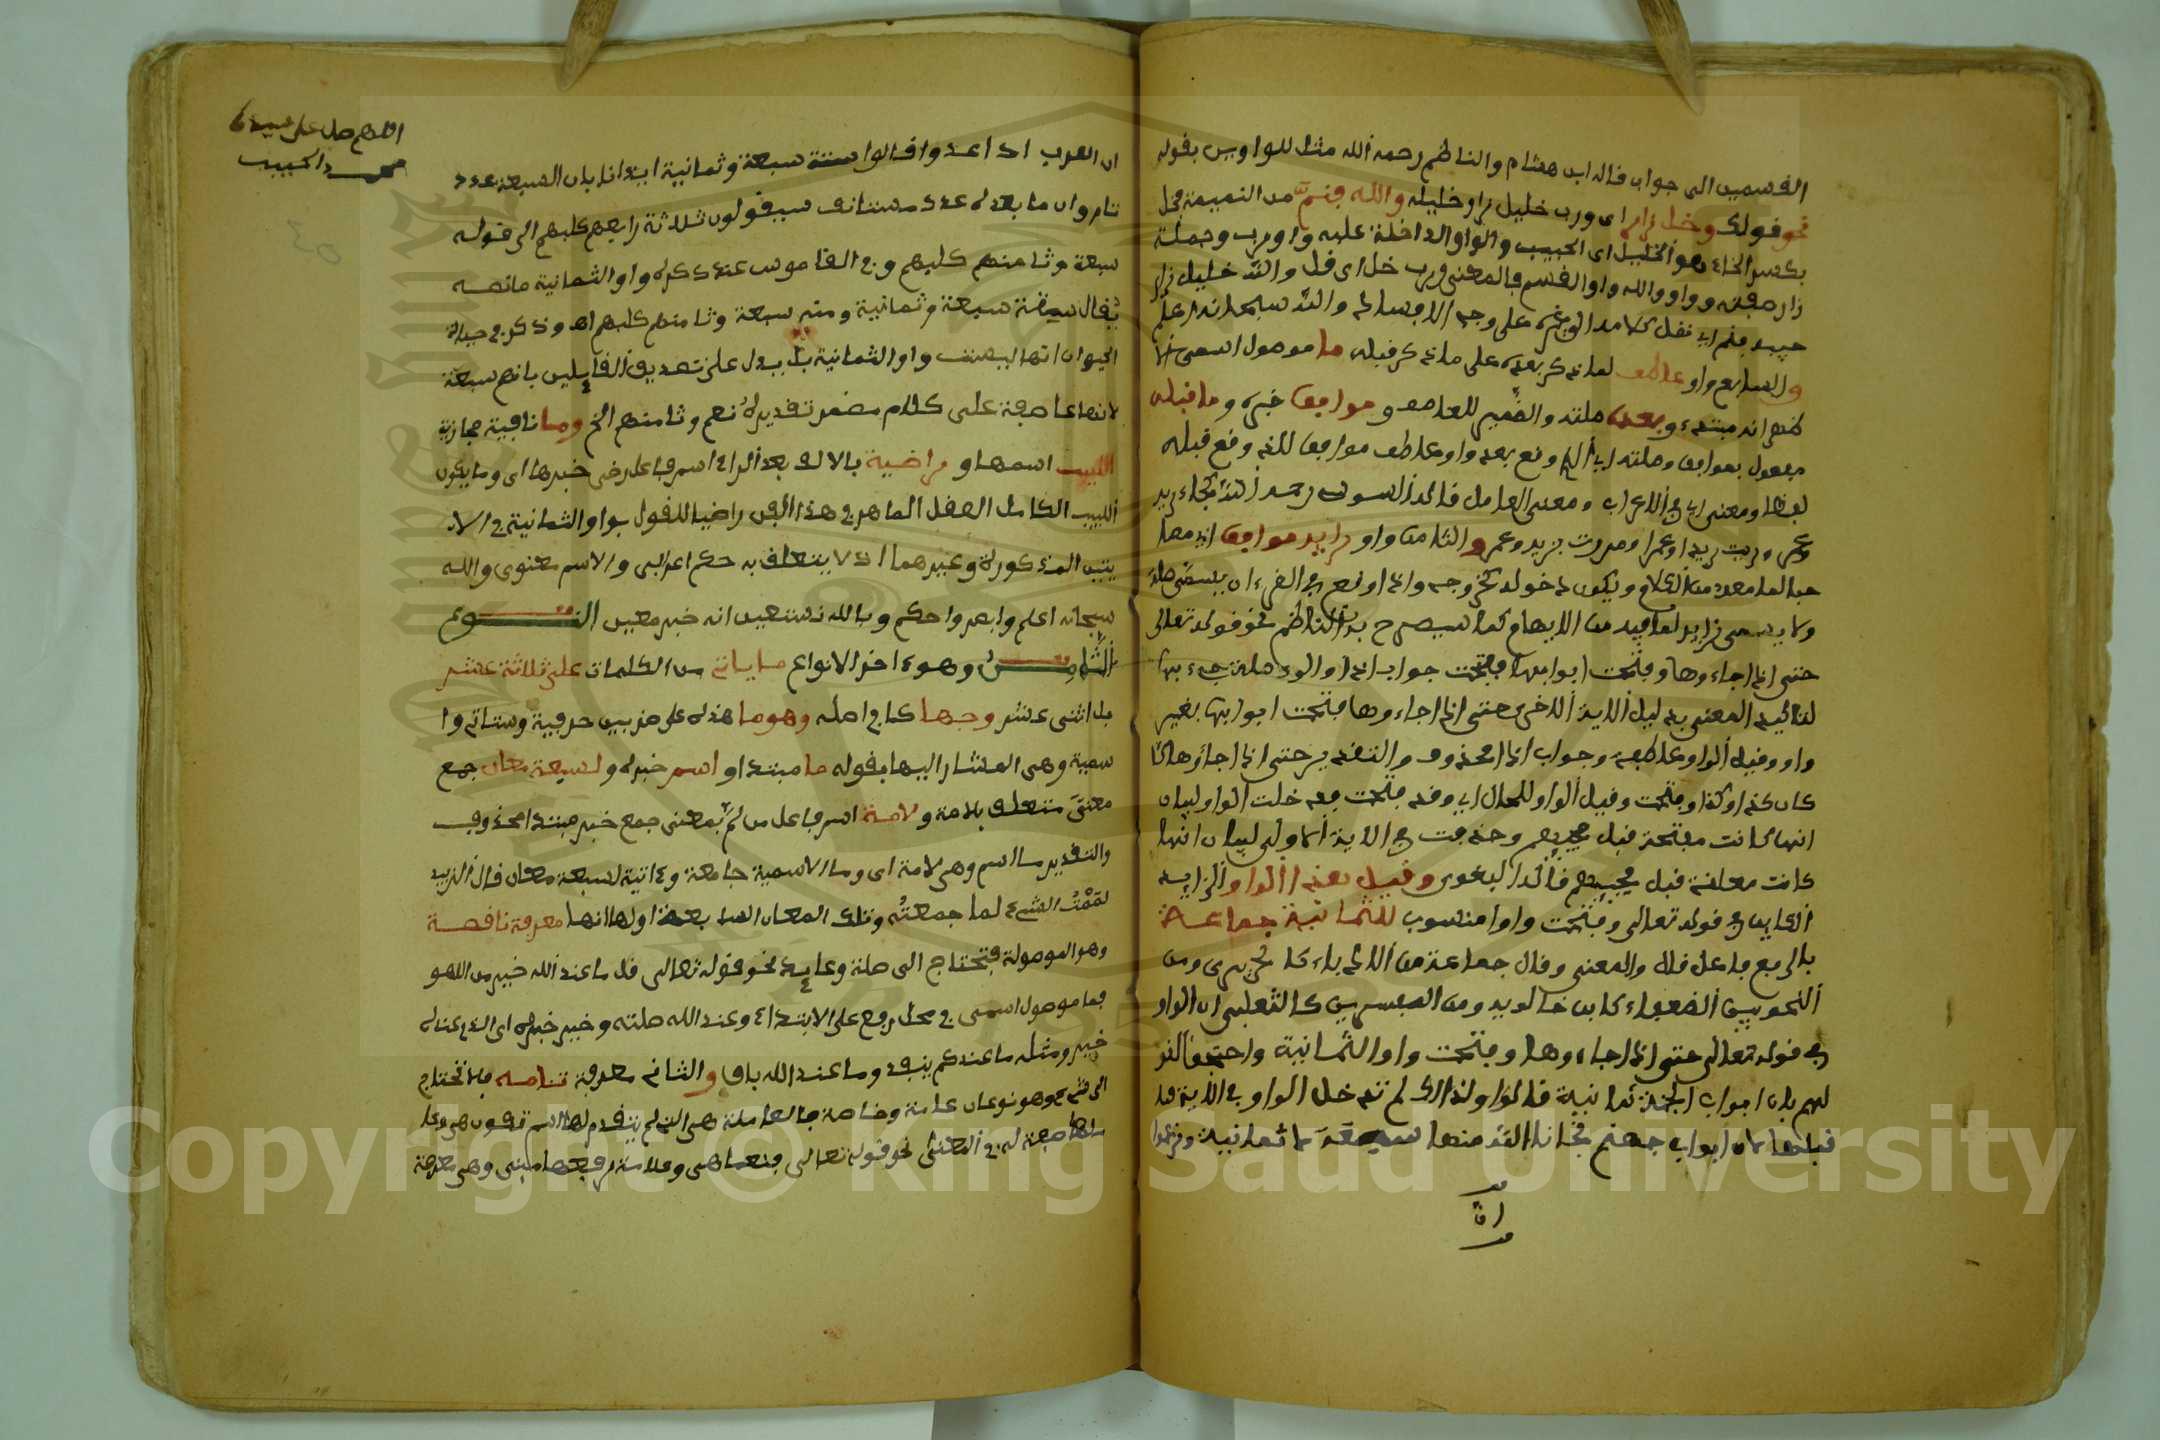 القسمين الى جواب قاله ابن هشام والناظم رحمه الله مثل للواوين بقوله
نحو قولك وخل زار اى ورب خليل زار خليله والله فنم من النميمة بخل
بكسر الخاء وهو الخليل اى الحبيب والواو الداخلة عليه واو رب وجملة
زار صفته وواو والله واو القسم فالمعنى ورب خل اى قل والله خليل زار
حبيبه فنم اى نقل كلامه الى غيره على وجه الافساد والله سبحانه اعلم
والسابع واو عاطف لما ذكر بعده على ما ذكر قبله ما موصول اسمى
مبتدء وبعد صلته والضمير للعاطف وموافق خبره وما قبله
مفعول بموافق وصلته اى الذى وقع بعد واو عاطف موافق للذى وقع قبله
لفظا ومعنى اى فى الاعراب ومعنى العامل قاله السوسى رحمه الله كجاء زيد
وعمر ورايت زيدا وعمرا ومررت بزيد وعمر والثامن واو زايد موافق
من الكلام ويكون دخوله كخروجه وانه اوقع فى القرءان يسمى صلة
ولا يسمى زايد لما فيه من الايهام كما سيصرح به الناظم نحو قوله تعالى
حتى اذا جاءوها وفتحت ابوابها ففتحت جواب اذا والواو صلة جيء بها
لتاكيد المعنى بدليل الاية الاخرى حتى اذا جاءوها فتحت ابوابها بغير
واو وقيل الواو عاطفة وجواب اذا محذوف والتقدير حتى اذا جاؤها
كان كذا وكذا وفتحت وقيل الواو للحال اى وقد فتحت فدخلت الواو لبيان
انها كانت مفتحة قبل مجيهم وحذفت فى الاية الاولى لبيان انها
كانت مغلقة قبل مجييهم قاله البغوى وقيل هذه الواو الزايدة
الكاين فى قوله تعالى وفتحت واوا منسوب للثمانية جماعة
بالرفع فاعل قال والمعنى وقال جماعة من الادباء كالحريرى ومن
النحويين الضعفاء كابن خالويه ومن المفسرين كالثعلبى ان الواو
فى قوله تعالى حتى اذا جاءوها وفتحت واو الثمانية واحتجوا
لهم بان ابواب الجنة ثمانية قالوا ولذلك لم تدخل الواو فى الاية
قبلها لان ابواب جهنم نجانا الله منها سبعة لا ثمانية وقالوا
ان
اللهم صل على سيدنا
محمد الحبيب
ان العرب اذا عدوا قالوا ستة سبعة وثمانية ايذانا بان السبعة عدد
تام وان ما بعده عدد مستانف سيقولون ثلاثة رابعهم كلبهم الى قوله
سبعة وثامنهم كلبهم وفى القاموس عند ذكره واو الثمانية ما نصه
يقال ستة سبعة وثمانية ومنه سبعة وثامنهم كلبهم اه وذكر فى حياة
الحيوان انها ليست واو الثمانية بل يدل على تصديق القايلين بانهم سبعة
لانها عاطفة على كلام مضمر تقديره نعم وثامنهم الخ وما نافية حجازية
اللبيب اسمها وراضية بالالف بعد الراء اسم فاعل رضى خبرها اى وما يكون
اللبيب الكامل العقل الماهر فى هذا الفن راضيا للقول بواو الثمانية فى الا
يتين المذكورة وغيرهما اذ لا يتعلق به حكم اعرابى ولا سم معنوى والله
سبحانه اعلم وابصر واحكم وبالله نستعين انه خير معين النوع
الثامن وهو ءاخر الانواع ما ياتى من الكلمات على ثلاثة عشر
بل اثنى عشر وجها كما فى اصله وهو ما هذه على ضربين حرفية وستاتى وا
سمية وهى المشار اليها بقوله ما مبتدا واسم خبره ولسبعة معان جمع
معنى متعلق بلامة ولامة اسم فاعل من لم بمعنى جمع خبر مبتدا محذوف
والتقدير ما اسم وهى لامة اى وما الاسمية جامعة وءاتية لسبعة معان قال الزبيد
لممت الشىء لما جمعته وتلك المعان السبعة اولها انها معرفة ناقصة
وهو الموصولة فتحتاج الى صلة وعايد نحو قوله تعالى قل ما عند الله خير من اللهو
فما موصول اسمى فى محل رفع على الابتداء وعند الله صلته وخير خبره اى الذى عند الله
خير ومثله ما عندكم ينفد وما عند الله باق والثانى معرفة تامه فلا تحتاج
الى شىء وهو نوعان عامة وخاصة فالعاملة هى التى لم يتقدم لها اسم تكون هى وعا
ملها صفة له فى المعنى نحو قوله تعالى فنعما هى وعلامة رفعها مبنى وهى معرفة